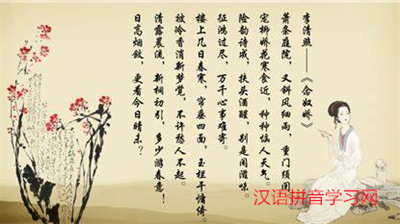 李清照——《念奴娇》
萧条庭院，又斜风细雨，重门须闭。
宠柳娇花寒食近，种种恼人天气。
险韵诗成，扶头酒醒，别是闲滋味。
征鸿过尽，万千心事难寄。
楼上几日春寒，帘垂四面，玉栏干慵倚。
被冷香消新梦觉，不许愁人不起。
清露晨流，新桐初引，多少游春意！
日高烟敛，更看今日晴未？
汉语拼音学习网